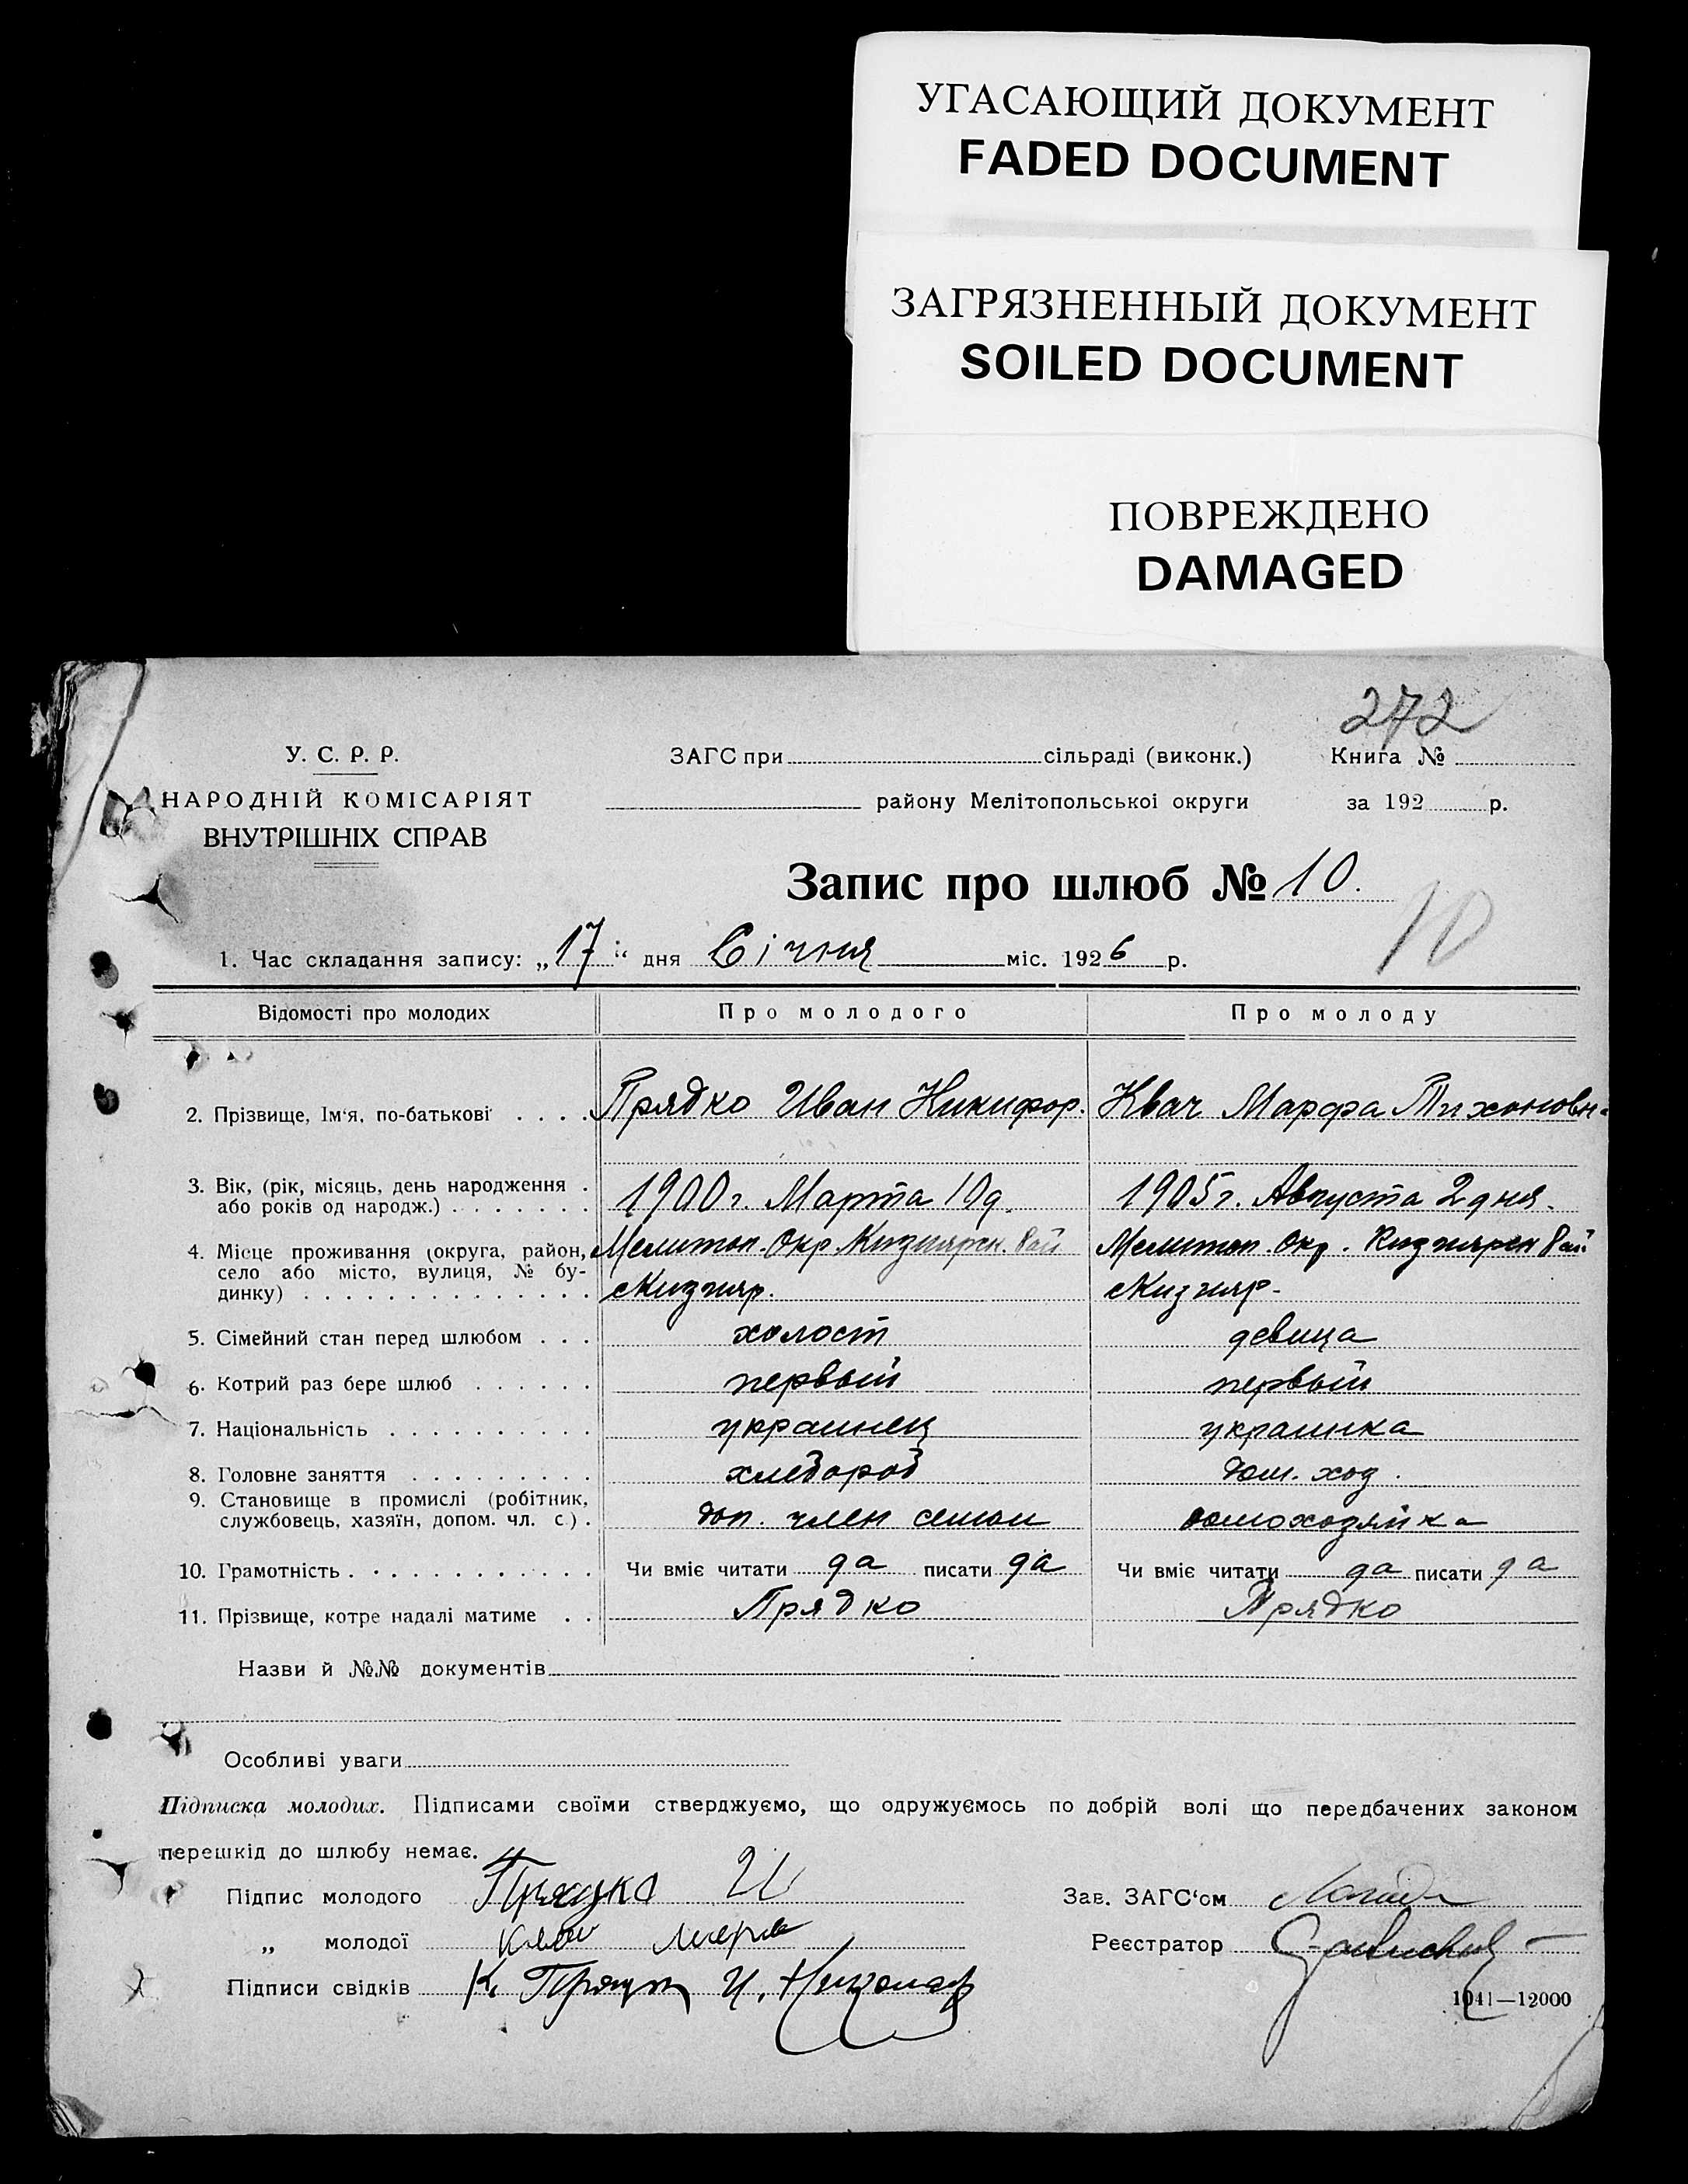 УГАСАЮЩИЙ ДОКУМЕНТ
FADED DOCUMENT
ЗАГРЯЗНЕННЫЙ ДОКУМЕНТ
SOILED DOCUMENT
ПОВРЕЖДЕНО
DAMAGED
272
У. С. Р. Р.
НАРОДНІЙ КОМІСАРІЯТ
ВНУТРІШНІХ СПРАВ
ЗАГС при сільраді (виконк.)
району Мелітопольської округи
Книга №
за 192 р.
Запис про шлюб № 10.
10
1. Час складання запису: „17" дня Січня міс. 1926 р.
Відомості про молодих Про молодого Про молоду
2. Прізвище, Ім'я, по-батькові Прядко Иван Никифор. Квач Марфа Тихоновн.
3. Вік, (рік, місяць, день народження
або років од народж.) 1900 г. Марта 10 д. 1905 г. Августа 2 дня.
4. Місце проживання (округа, район, Мелитоп. Окр. Кизиярск. Рай Мелитоп. Окр. Кизиярск Рай
село або місто, вулиця, № бу-
динку) с Кизияр. с Кизияр.
5. Сімейний стан перед шлюбом холост девица
6. Котрий раз бере шлюб первый первый
7. Національність украинец украинка
8. Головне заняття хлебороб дом. хоз.
9. Становище в промислі (робітник,
службовець, хазяїн, допом. чл. с.) доп. член семьи домохозяйка
10. Грамотність Чи вміє читати да писати да Чи вміє читати да писати да
11. Прізвище, котре надалі матиме Прядко Прядко
Назви й №№ документів
Особливі уваги
Підписка молодих. Підписами своїми стверджуємо, що одружуємось по добрій волі що передбачених законом
перешкід до шлюбу немає.
Підпис молодого Прядко И
Зав. ЗАГС'ом
„ молодої Квач
Реєстратор
Підписи свідків К.
1041—12000